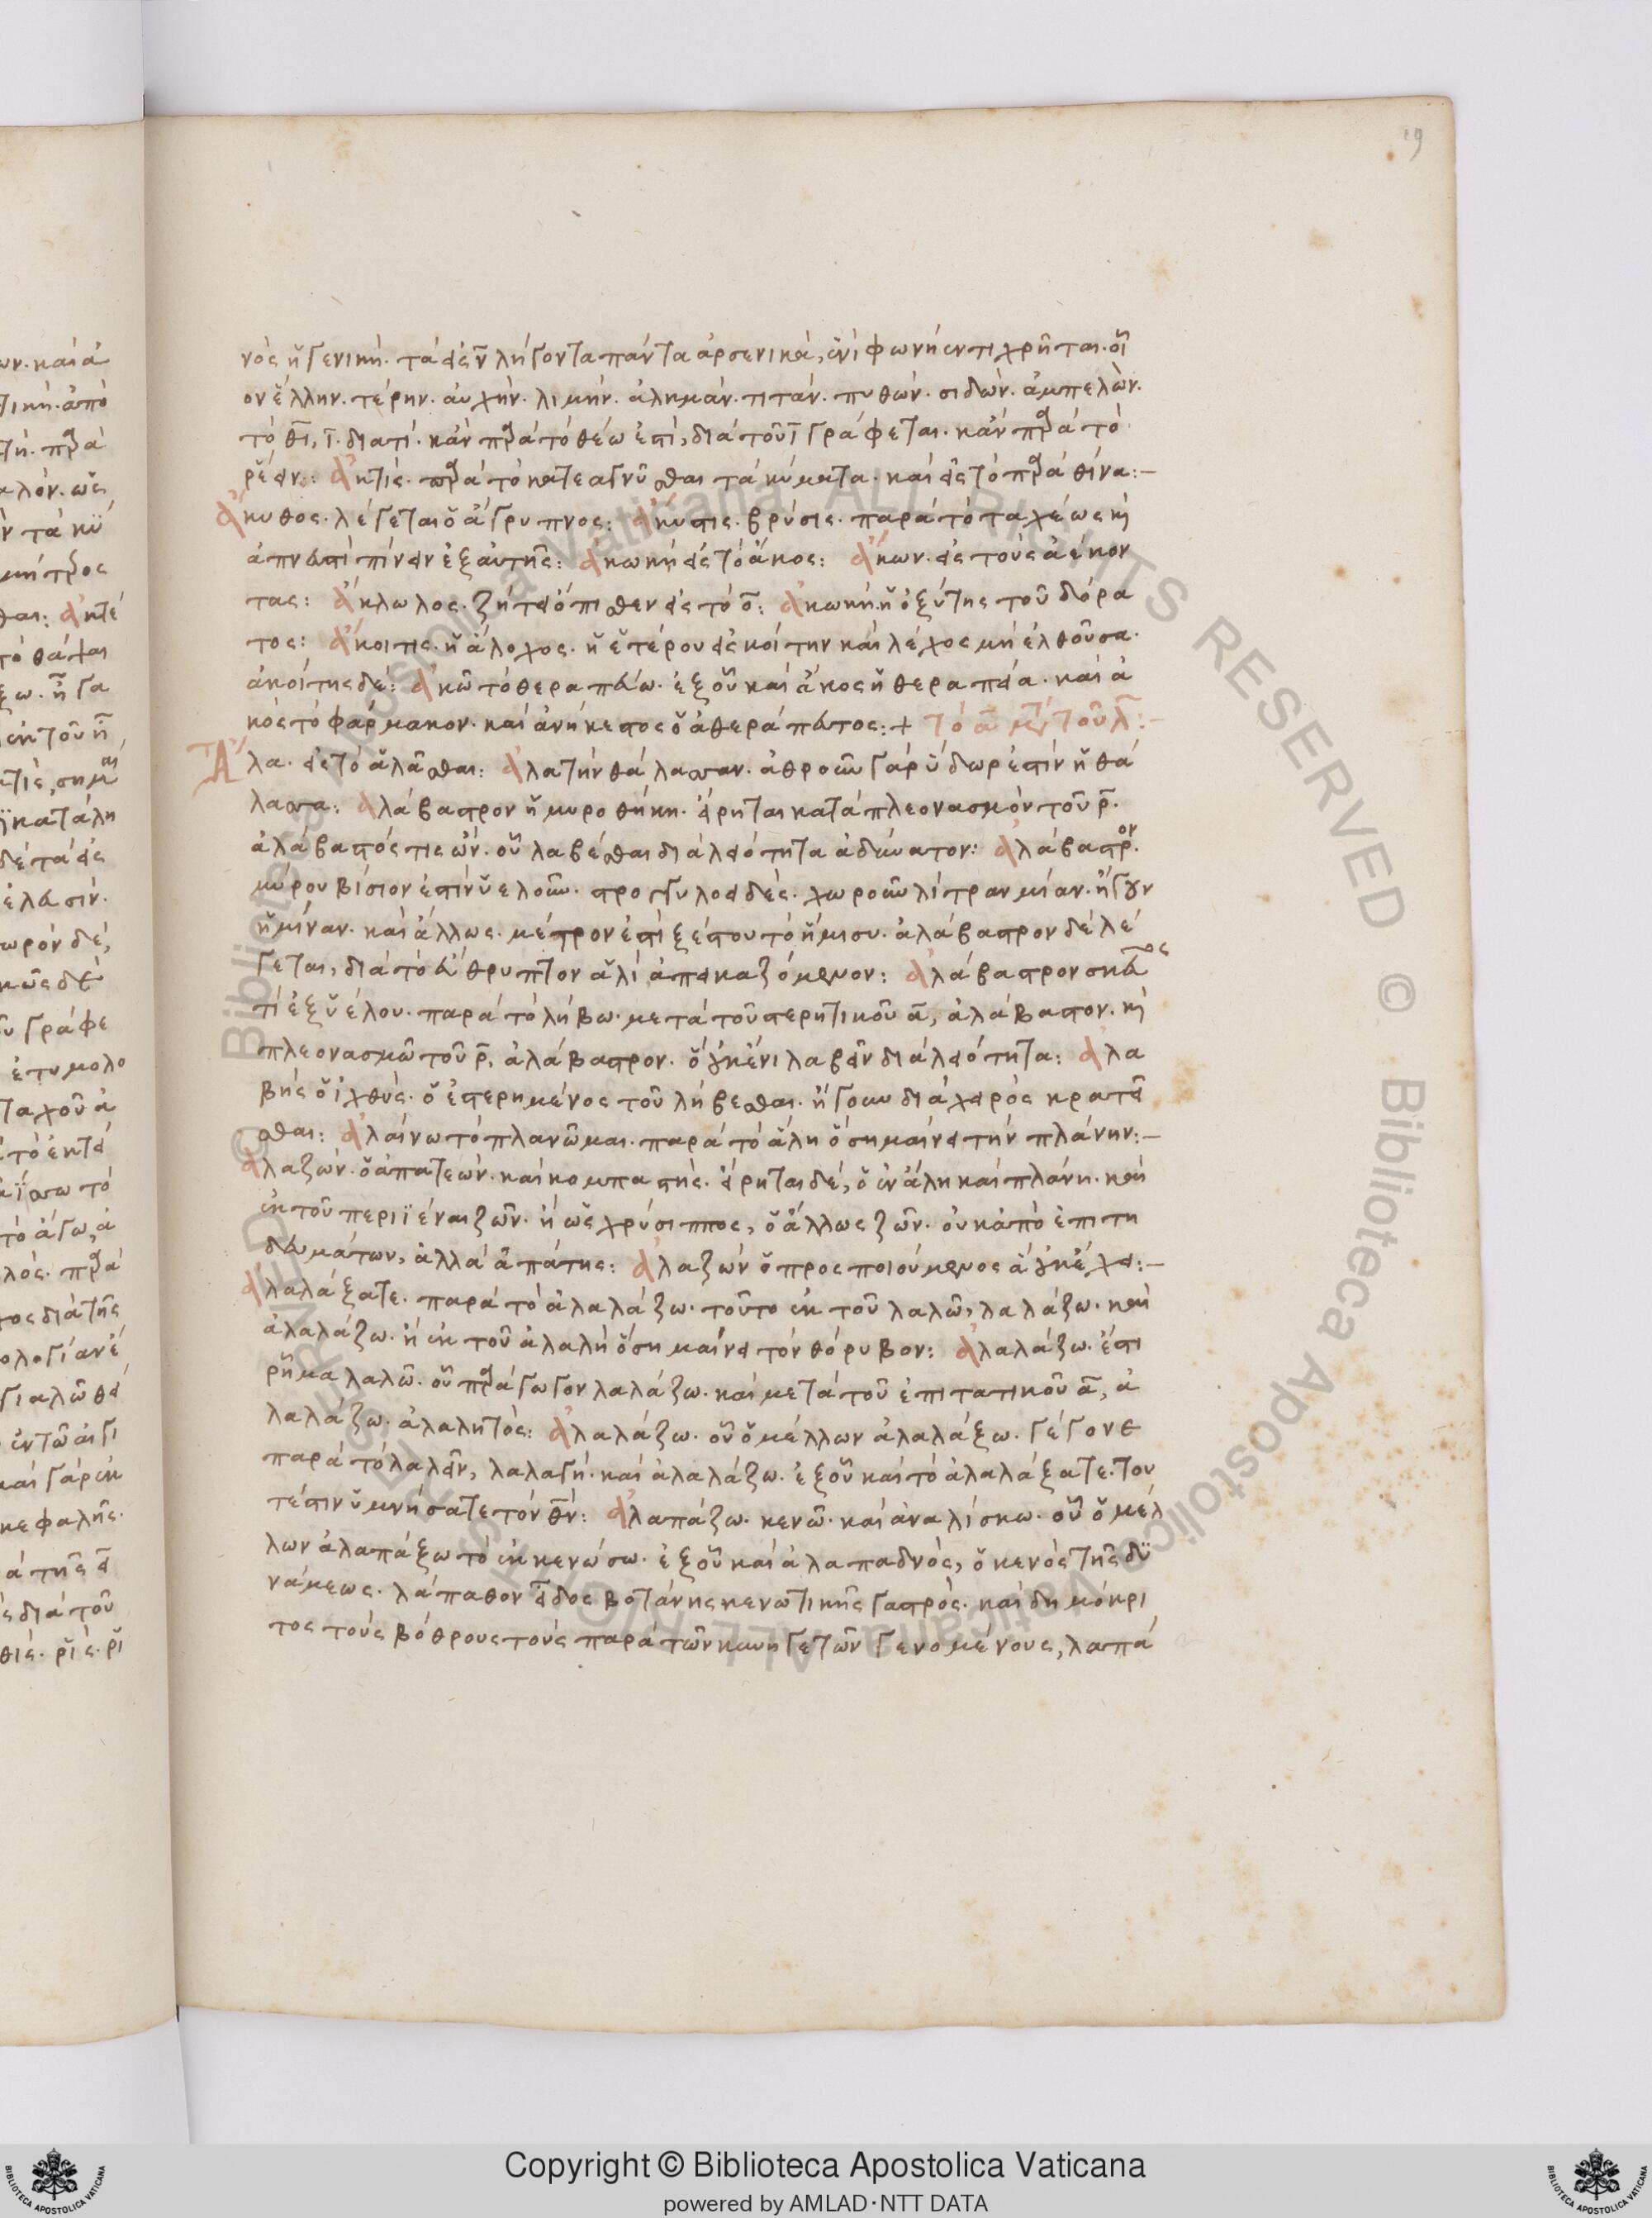 19
νὸς ἡ γενική. τὰ εἰς ν̅ λήγοντα πάντα ἀρσενικά, ἑνὶ φωνήεντι χρῆται. οἷ
ον ἕλλην. τέρην. αὐχήν. λιμήν. ἀλημάν. τιτάν. πυθών. σιδών. ἀμπελών.
τὸ θ̅ι̅, ι̅. διατί. κἂν πρὰ τὸ θέω ἐστί, διὰ τοῦ ι̅ γράφεται. κἂν πρὰ τὸ
ῥέειν: ἀκτίς. πρὰ τὸ κατεάγνυσθαι τὰ κύματα. καὶ εἰς τὸ πρὰ θίνα:–
ἄκυθος. λέγεται ὁ ἄγρυπνος: ἄκυστις. βρύσις. παρὰ τὸ ταχέως κὶ
ἀπνευστὶ πίνειν ἐξ αὐτῆς: ἀκωκὴ εἰς τὸ ἄκος: ἄκων. εἰς τοὺς ἀέκον
τας: ἄκλωλος. ζήτει ὄπισθεν εἰς τὸ ο̅: ἀκωκή. ἡ ὀξύτης τοῦ δόρα
τος: ἄκοιτις. ἡ ἄλοχος. ἡ ἑτέρου εἰς κοίτην καὶ λέχος μὴ ἐλθοῦσα.
ἀκοίτης δέ: ἀκῶ τὸ θεραπεύω. ἐξ οὗ καὶ ἄκος ἡ θεραπεία. καὶ ἀ
κὸς τὸ φάρμακον. καὶ ἀνήκεστος ὁ ἀθεράπευτος:+ Τὸ α̅ μετὰ τοῦ λ̅:–
Ἄλα. εἰς τὸ ἀλᾶσθαι: ἄλα τὴν θάλασσαν. ἀθροῦν γὰρ ὕδωρ ἐστὶν ἡ θά
λασσα: ἀλάβαστρον ἡ μυροθήκη. εἴρηται κατὰ πλεονασμὸν τοῦ ρ̅.
ἀλάβαστός τις ὤν. οὗ λαβέσθαι διὰ λειότητα ἀδύνατον: ἀλάβαστρον.
μύρου βίσιον ἐστὶν ὑελοῦν. στρογγυλοειδές. χωροῦν λίτραν μίαν. ἤγουν
ἡμίναν. καὶ ἄλλως. μέτρον ἐστὶ ξέστου τὸ ἥμισυ. ἀλάβαστρον δὲ λέ
γεται, διὰ τὸ εὔθρυπτον ἁλὶ ἀπεικαζόμενον: ἀλάβαστρον σκεῦος
τί ἐξ ὑέλου. παρὰ τὸ λήβω. μετὰ τοῦ στερητικοῦ α̅, ἀλάβαστον. κὶ
πλεονασμῶ τοῦ ρ̅, ἀλάβαστρον. ὃ οὐκ ἔνι λαβεῖν διὰ λειότητα: ἀλα
βὴς ὁ ἰχθύς. ὁ ἐστερημένος τοῦ λήβεσθαι. ἤγουν διὰ χειρὸς κρατεῖ
σθαι: ἀλαίνω τὸ πλανῶμαι. παρὰ τὸ ἄλη ὃ σημαίνει τὴν πλάνην:–
ἀλαζών. ὁ ἀπατεών. καὶ κομπαστής. εἴρηται δέ, ὁ ἐν ἄλη καὶ πλάνη. καὶ
ἐκ τοῦ περιϊέναι ζῶν. ἢ ὡς χρύσιππος, ὁ ἄλλως ζῶν. οὐκ ἀπὸ ἐπιτη
δευμάτων, ἀλλὰ ἀπάτης: ἀλαζὼν ὁ προσποιούμενος ἃ οὐκ ἔχει:–
ἀλαλάξατε. παρὰ τὸ ἀλαλάζω. τοῦτο ἐκ τοῦ λαλῶ, λαλάζω. καὶ
ἀλαλάζω. ἢ ἐκ τοῦ ἀλαλὴ ὃ σημαίνει τὸν θόρυβον: ἀλαλάζω. ἔστι
ῥῆμα λαλῶ. οὗ πράγωγον λαλάζω. καὶ μετὰ τοῦ ἐπιτατικοῦ α̅, ἀ
λαλάζω. ἀλαλητός: ἀλαλάζω. οὗ ὁ μέλλων ἀλαλάξω. γέγονε
παρὰ τὸ λαλεῖν, λαλαγή. καὶ ἀλαλάζω. ἐξ οὗ καὶ τὸ ἀλαλάξατε. του
τέστιν ὑμνήσατε τὸν θ̅ν̅: ἀλαπάζω. κενῶ. καὶ ἀναλίσκω. οὗ ὁ μέλ
λων ἀλαπάξω τὸ ἐκκενώσω. ἐξ οὗ καὶ ἀλαπαδνός, ὁ κενὸς τῆς δυ
νάμεως. λάπαθον εἶδος βοτάνης κενωτικῆς γαστρός. καὶ δημόκρι
τος τοὺς βόθρους τοὺς παρὰ τῶν κυνηγετῶν γενομένους, λαπά
Copyright © Biblioteca Apostolica Vaticana
powered by AMLAD・NTT DATA